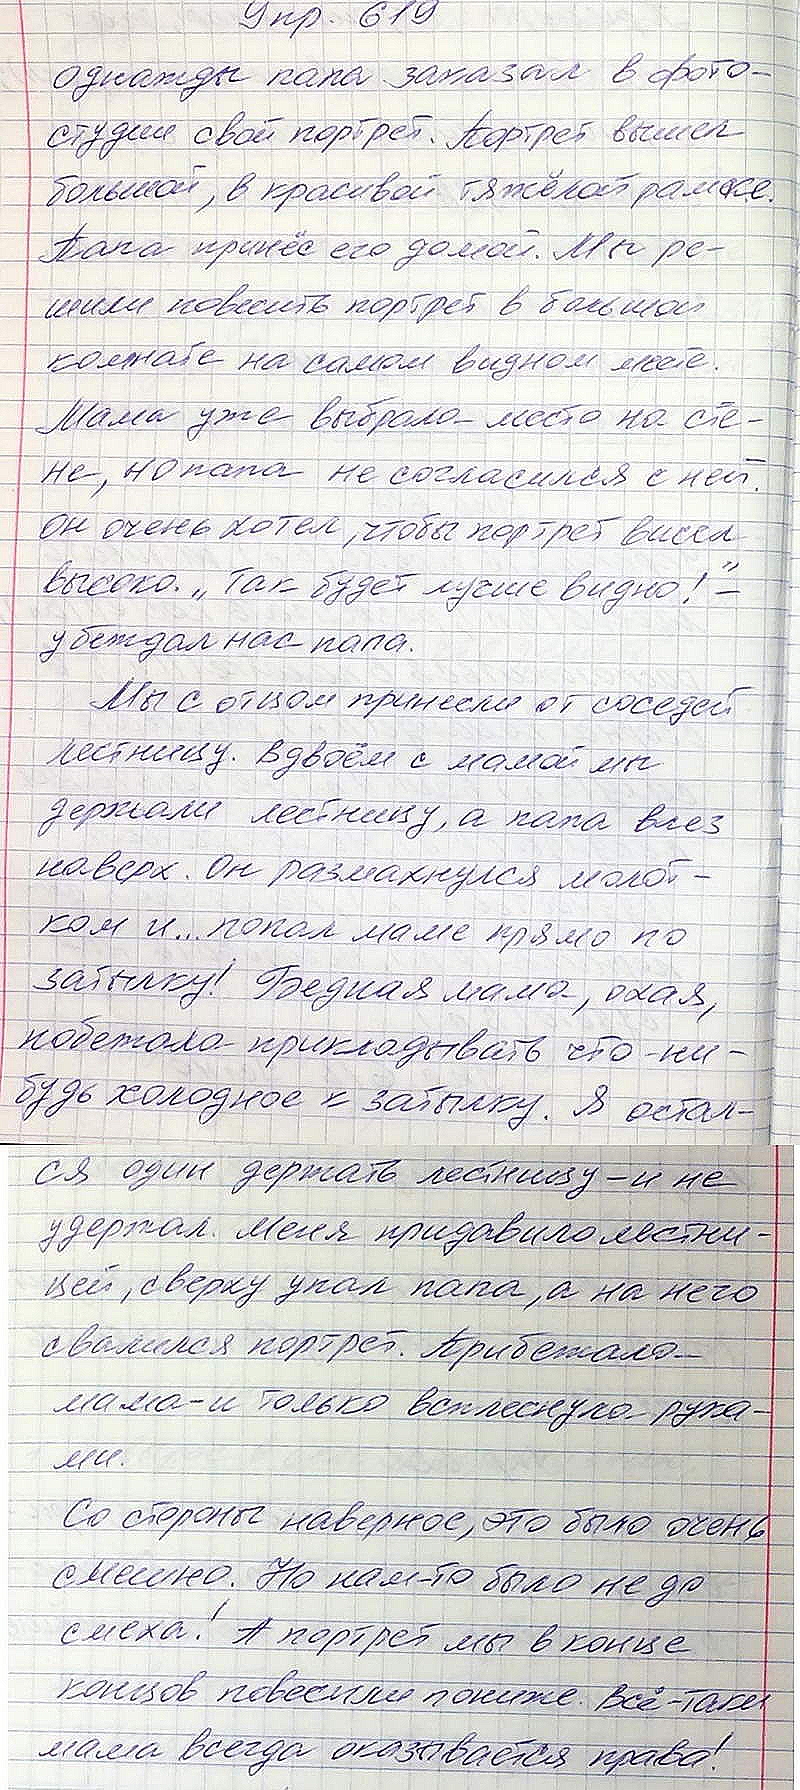 Упр. 619
Однажды папа заказал в фото-
студии свой портрет. Портрет вышел
большой, в красивой тяжёлой рамке.
Папа принёс его домой. Мы ре-
шили повесить портрет в большой
комнате на самом видном месте.
Мама уже выбрала место на сте-
не, но папа не согласился с ней.
Он очень хотел, чтобы портрет висел
высоко. „Так будет лучше видно!" –
убеждал нас папа.
Мы с отцом принесли от соседей
лестницу. Вдвоём с мамой мы
держали лестницу, а папа влез
наверх. Он размахнулся молот-
ком и... попал маме прямо по
затылку! Бедная мама, охая,
побежала прикладывать что-ни-
будь холодное к затылку. Я остал-
ся один держать лестницу – и не
удержал. Меня придавило лестни-
цей, сверху упал папа, а на него
свалился портрет. Прибежала
мама – и только всплеснула рука-
ми.
Со стороны наверное, это было очень
смешно. Но нам-то было не до
смеха! А портрет мы в конце
концов повесили пониже. Всё-таки
мама всегда оказывается права!